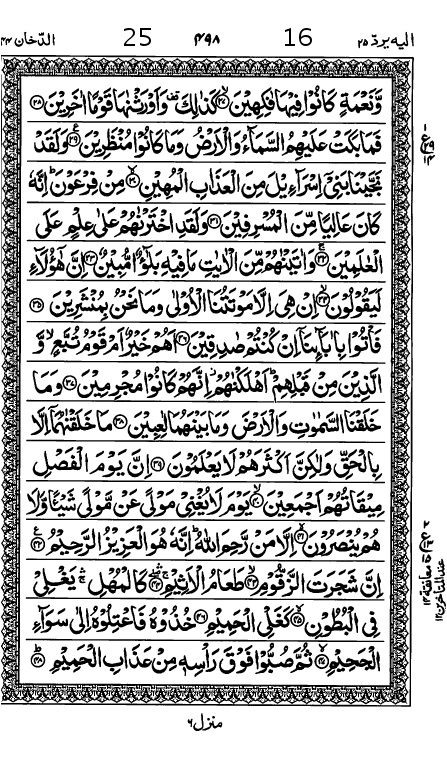 الدخان ٤٤ 25 ٤٩٨ 16 اليه يرد ٢٥
وَّنَعْمَةٍ كَانُوْا فِيْهَا فٰكِهِيْنَ ۝٢٧ كَذٰلِكَ ۫ وَاَوْرَثْنٰهَا قَوْمًا اٰخَرِيْنَ ۝٢٨
فَمَا بَكَتْ عَلَيْهِمُ السَّمَآءُ وَالْاَرْضُ وَمَا كَانُوْا مُنْظَرِيْنَ ۝٢٩ وَلَقَدْ
نَجَّيْنَا بَنِيْٓ اِسْرَآءِيْلَ مِنَ الْعَذَابِ الْمُهِيْنِ ۝٣٠ مِنْ فِرْعَوْنَ ؕ اِنَّهٗ
كَانَ عَالِيًا مِّنَ الْمُسْرِفِيْنَ ۝٣١ وَلَقَدِ اخْتَرْنٰهُمْ عَلٰى عِلْمٍ عَلَى
الْعٰلَمِيْنَ ۝٣٢ وَاٰتَيْنٰهُمْ مِّنَ الْاٰيٰتِ مَا فِيْهِ بَلٰٓؤٌا مُّبِيْنٌ ۝٣٣ اِنَّ هٰٓؤُلَآءِ
لَيَقُوْلُوْنَ ۝٣٤ اِنْ هِيَ اِلَّا مَوْتَتُنَا الْاُوْلٰى وَمَا نَحْنُ بِمُنْشَرِيْنَ ۝٣٥
فَاْتُوْا بِاٰبَآئِنَآ اِنْ كُنْتُمْ صٰدِقِيْنَ ۝٣٦ اَهُمْ خَيْرٌ اَمْ قَوْمُ تُبَّعٍ ۙ وَّ
الَّذِيْنَ مِنْ قَبْلِهِمْ ؕ اَهْلَكْنٰهُمْ ؗ اِنَّهُمْ كَانُوْا مُجْرِمِيْنَ ۝٣٧ وَمَا
خَلَقْنَا السَّمٰوٰتِ وَالْاَرْضَ وَمَا بَيْنَهُمَا لٰعِبِيْنَ ۝٣٨ مَا خَلَقْنٰهُمَآ اِلَّا
بِالْحَقِّ وَلٰكِنَّ اَكْثَرَهُمْ لَا يَعْلَمُوْنَ ۝٣٩ اِنَّ يَوْمَ الْفَصْلِ
مِيْقَاتُهُمْ اَجْمَعِيْنَ ۝٤٠ يَوْمَ لَا يُغْنِيْ مَوْلًى عَنْ مَّوْلًى شَيْـًٔا وَّلَا
هُمْ يُنْصَرُوْنَ ۝٤١ اِلَّا مَنْ رَّحِمَ اللّٰهُ ؕ اِنَّهٗ هُوَ الْعَزِيْزُ الرَّحِيْمُ ۝٤٢
اِنَّ شَجَرَتَ الزَّقُّوْمِ ۝٤٣ طَعَامُ الْاَثِيْمِ ۝٤٤ كَالْمُهْلِ ۛۚ يَغْلِيْ
فِي الْبُطُوْنِ ۝٤٥ كَغَلْيِ الْحَمِيْمِ ۝٤٦ خُذُوْهُ فَاعْتِلُوْهُ اِلٰى سَوَآءِ
الْجَحِيْمِ ۝٤٧ ثُمَّ صُبُّوْا فَوْقَ رَاْسِهٖ مِنْ عَذَابِ الْحَمِيْمِ ۝٤٨
منزل ٦